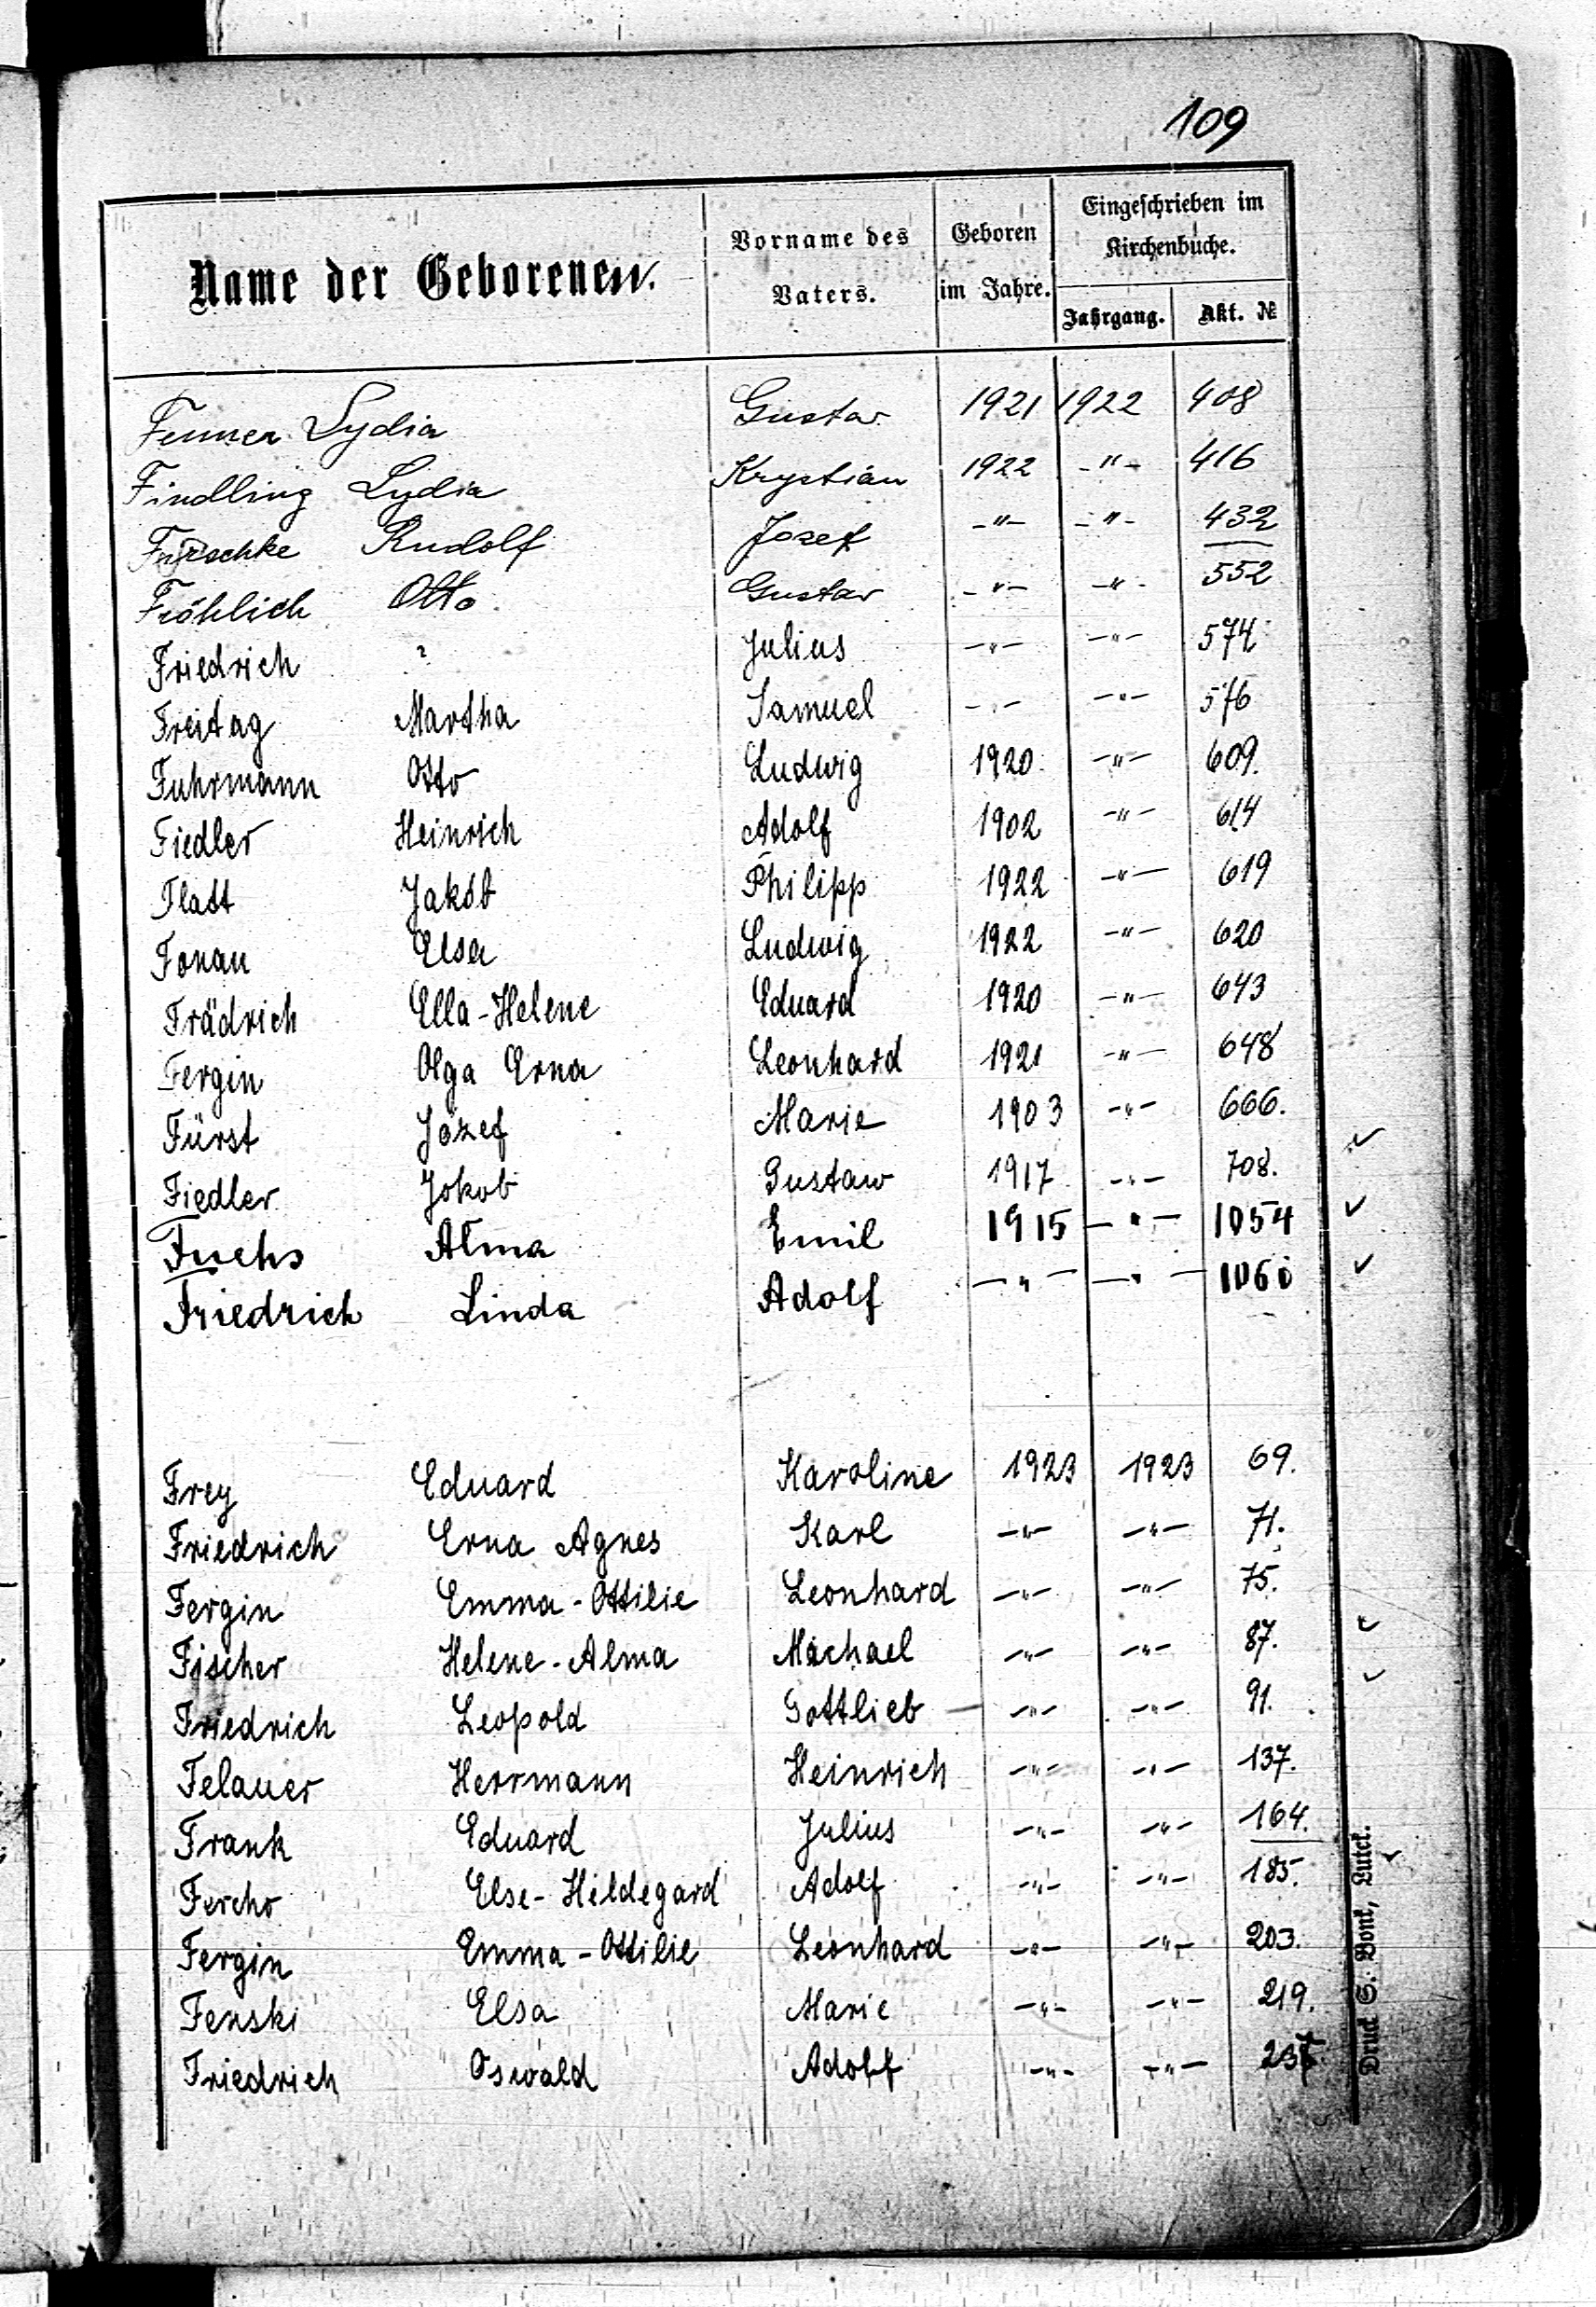 109
Name der Geborenen.
Vorname des Vaters.
Geboren im Jahre.
Eingeschrieben im Kirchenbuche.
Jahrgang. Akt. №
Fenner Lydia Gustav 1921 1922 408
Findling Lydia Krystian 1922 -"- 416
Rudolf Jozef -"- -"- 432
Fröhlich Otto Gustav -"- -"- 552
Friedrich ? Julius -"- -"- 574
Freitag Martha Samuel -"- -"- 576
Fuhrmann Otto Ludwig 1920 -"- 609.
Fiedler Heinrich Adolf 1902 -"- 614
Flatt Jakob Philipp 1922 -"- 619
Fonau Elsa Ludwig 1922 -"- 620
Frädrich Ella-Helene Eduard 1920 -"- 643
Fergin Olga Erna Leonhard 1921 -"- 648
Fürst Józef Marie 1903 -"- 666.
Fiedler Jokob Gustaw 1917 -"- 708.
Fuchs Alma Emil 1915 -"- 1054
Friedrich Linda Adolf -"- -"- 1060
Frey Eduard Karoline 1923 1923 69.
Friedrich Erna Agnes Karl -"- -"- 71.
Fergin Emma-Ottilie Leonhard -"- -"- 75.
Fischer Helene-Alma Michael -"- -"- 87.
Friedrich Leopold Gottlieb -"- -"- 91.
Felauer Herrmann Heinrich -"- -"- 137.
Frank Eduard Julius -"- -"- 164.
Fercho Else-Hildegard Adolf -"- -"- 185.
Fergin Emma-Ottilie Leonhard -"- -"- 203.
Fenski Elsa Marie -"- -"- 219.
Friedrich Oswald Adolf -"- -"- 237
Druck S. Bonk, Lutck.